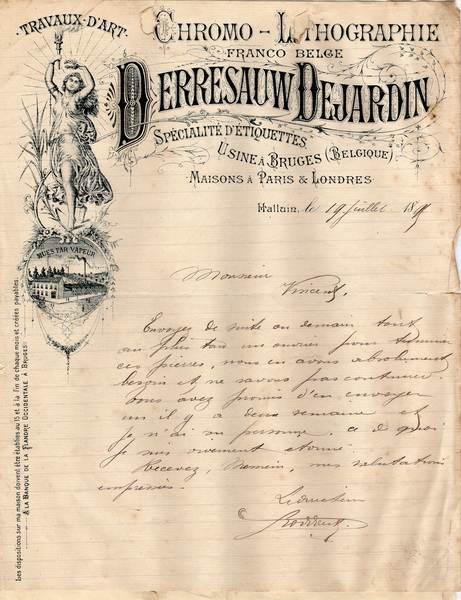 TRAVAUX D'ART
CHROMO - LITHOGRAPHIE
FRANCO BELGE
DERRESAUW DEJARDIN
SPÉCIALITÉ D'ÉTIQUETTES
USINE À BRUGES (BELGIQUE)
MAISONS À PARIS & LONDRES
Halluin, le 19 juillet 18
MUES PAR VAPEUR
Monsieur
Vincent,
Envoyez de suite ou demain tout
au plus tard un ouvrier pour
ces pierres, nous en avons absolument
besoin et ne savons pas continuer
vous avez promis d'en envoyer
un il y a deux semaines et
je n'ai vu personne. ce de quoi
je suis vivement étonné.
Recevez, Monsieur, mes salutations
empressées.
Le directeur
Les dispositions sur ma maison doivent être établies au 15 et à la fin de chaque mois et créées payables
À LA BANQUE DE LA FLANDRE OCCIDENTALE À BRUGES